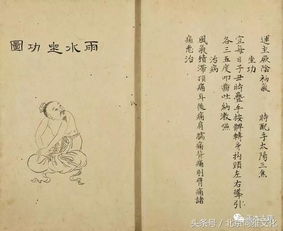 雨水坐功圖
運主厥陰初氣
時配手太陽三焦
坐功
宜每日子丑時疊手按䏶轉身拗頸左右導引
各三五度叩齒吐納漱嚥
治病
風氣壅滯頂痛耳後痛肩臑痛背痛肘臂痛諸
痛悉治
头条号